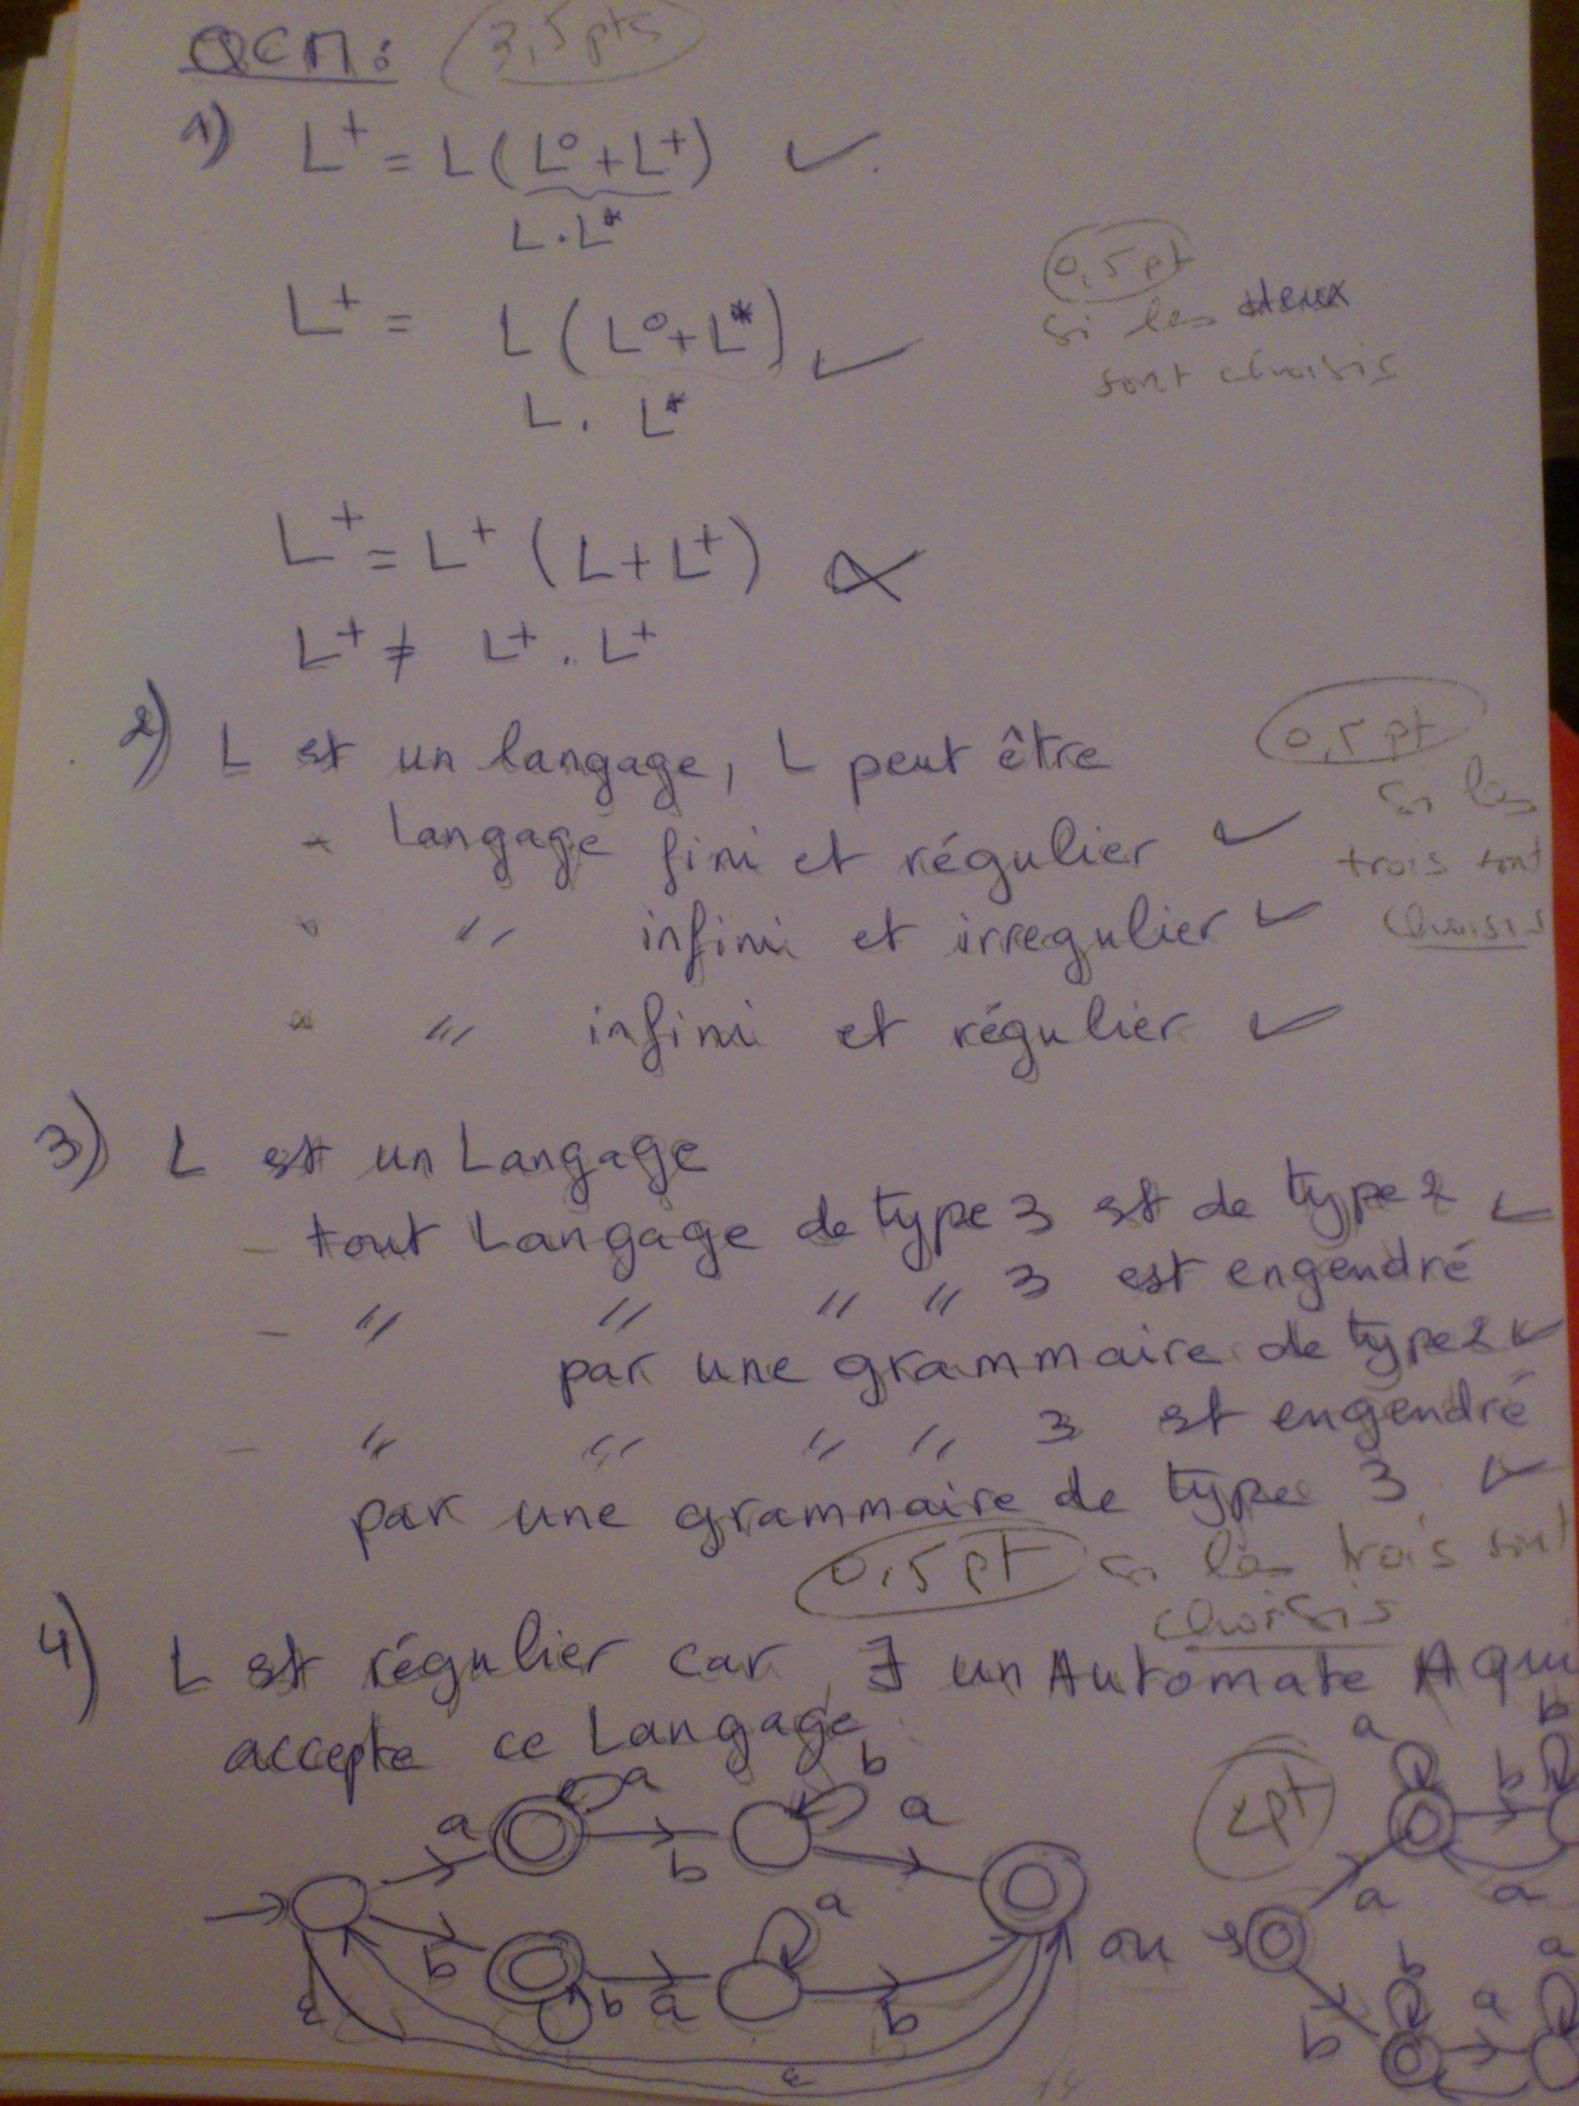 QCM: 3,5 pts
1) L⁺ = L (L⁰ + L⁺)
L . L*
L⁺ = L (L⁰ + L*)
L . L*
0,5 pt
si les deux
sont choisis
L⁺ = L⁺ (L + L⁺)
L⁺ ≠ L⁺ . L⁺
2) L est un langage, L peut être
0,5 pt
si les
trois sont
choisis
* Langage fini et régulier
* " infini et irregulier
* " infini et régulier
3) L est un Langage
- tout Langage de type 3 est de type 2
- " " " " 3 est engendré
par une grammaire de type 2
- " " " " 3 est engendré
par une grammaire de type 3
0,5 pt si les trois sont
choisis
4) L est régulier car ∃ un Automate A qui
accepte ce Langage
a a b b a
b b a a b
ε ε
ou
2pt
a b b
a a
b b a a